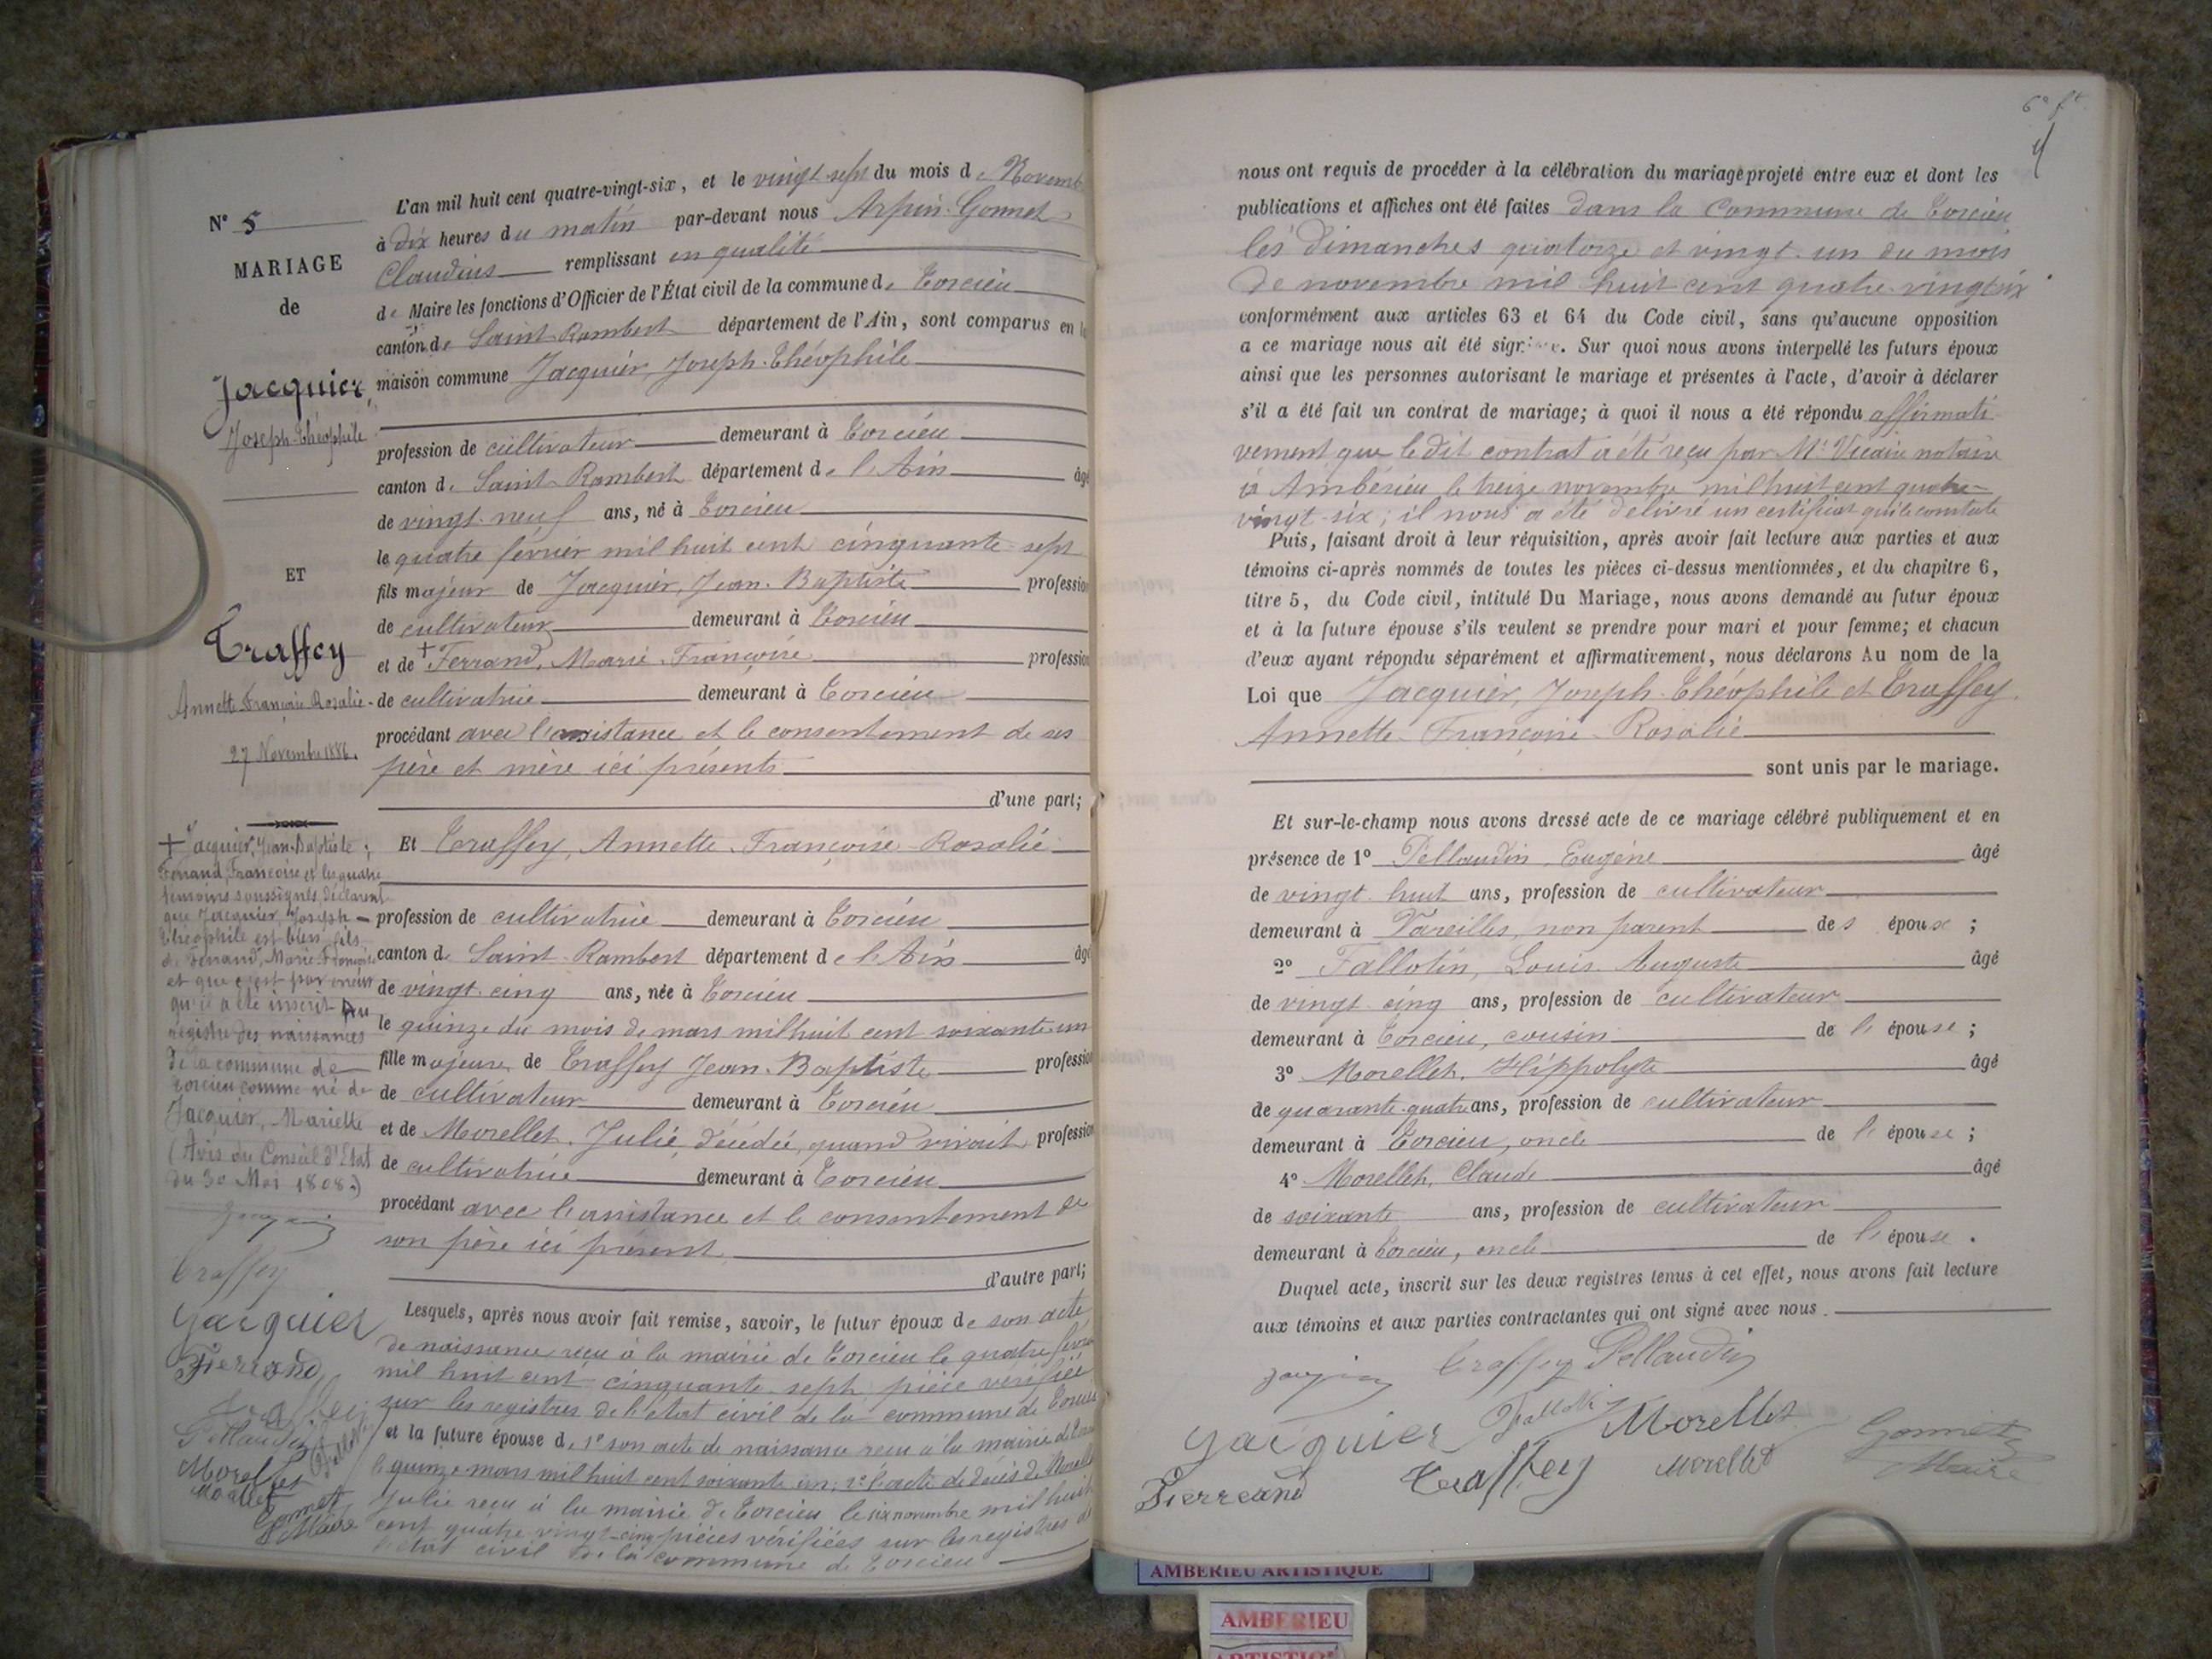 N° 5
MARIAGE
de
Jacquier,
Joseph-Théophile
ET
Traffey
Annette Françoise Rosalie
27 Novembre 1886.
+ Jacquier, Jean-Baptiste;
Ferrand, Françoise et les quatre
témoins soussignés, déclarent
que Jacquier, Joseph-
Théophile est bien fils
de Ferrand, Marie-Françoise
et que c'est par erreur
qu'il a été inscrit au
registre des naissances
de la commune de
Torcieu comme né de
Jacquier, Mariette
(Avis du Conseil d'Etat
du 30 Mai 1808.)
Traffey
Jacquier
Fierrand
Traffey
Pellaudin
Morellet
Morellet
Gonnet
Maire
L'an mil huit cent quatre-vingt-six, et le vingt-sept du mois de Novemb
à dix heures du matin par-devant nous Arpin-Gonnet
Claudius remplissant en qualité
de Maire les fonctions d'Officier de l'État civil de la commune de Torcieu
canton de Saint-Rambert département de l'Ain, sont comparus en la
maison commune Jacquier, Joseph-Théophile
profession de cultivateur demeurant à Torcieu
canton de Saint-Rambert département de l'Ain âgé
de vingt-neuf ans, né à Torcieu
le quatre février mil huit cent cinquante-sept
fils majeur de Jacquier, Jean-Baptiste profession
de cultivateur demeurant à Torcieu
et de + Ferrand, Marie-Françoise profession
de cultivatrice demeurant à Torcieu
procédant avec l'assistance et le consentement de ses
père et mère ici présents
d'une part;
Et Traffey, Annette-Françoise-Rosalie
profession de cultivatrice demeurant à Torcieu
canton de Saint-Rambert département de l'Ain âgé
de vingt-cinq ans, née à Torcieu
le quinze du mois de mars mil huit cent soixante-un
fille majeure de Traffey Jean-Baptiste profession
de cultivateur demeurant à Torcieu
et de Morellet, Julie, décédée, quand vivait profession
de cultivatrice demeurant à Torcieu
procédant avec l'assistance et le consentement de
son père ici présent
d'autre part;
Lesquels, après nous avoir fait remise, savoir, le futur époux de son acte
de naissance reçu à la mairie de Torcieu le quatre févr
mil huit cent cinquante-sept, pièce vérifiée
sur les registres de l'état civil de la commune de Torcieu
et la future épouse de 1° son acte de naissance reçu à la mairie de Torcieu
le quinze mars mil huit cent soixante-un; 2° l'acte de décès de Morellet
Julie reçu à la mairie de Torcieu le six novembre mil huit
cent quatre-vingt-cinq pièces vérifiées sur les registres de
l'état civil de la commune de Torcieu
6e ft
nous ont requis de procéder à la célébration du mariage projeté entre eux et dont les
publications et affiches ont été faites dans la Commune de Torcieu
les dimanches quatorze et vingt-un du mois
de novembre mil huit cent quatre-vingt-six
conformément aux articles 63 et 64 du Code civil, sans qu'aucune opposition
a ce mariage nous ait été signifiée. Sur quoi nous avons interpellé les futurs époux
ainsi que les personnes autorisant le mariage et présentes à l'acte, d'avoir à déclarer
s'il a été fait un contrat de mariage; à quoi il nous a été répondu affirmati-
vement que ledit contrat a été reçu par Me Vicaire notaire
à Ambérieu le treize novembre mil huit cent quatre-
vingt-six; il nous a été délivré un certificat qui le constate
Puis, faisant droit à leur réquisition, après avoir fait lecture aux parties et aux
témoins ci-après nommés de toutes les pièces ci-dessus mentionnées, et du chapitre 6,
titre 5, du Code civil, intitulé Du Mariage, nous avons demandé au futur époux
et à la future épouse s'ils veulent se prendre pour mari et pour femme; et chacun
d'eux ayant répondu séparément et affirmativement, nous déclarons Au nom de la
Loi que Jacquier, Joseph-Théophile et Traffey,
Annette-Françoise-Rosalie
sont unis par le mariage.
Et sur-le-champ nous avons dressé acte de ce mariage célébré publiquement et en
présence de 1° Pellaudin, Eugène âgé
de vingt-huit ans, profession de cultivateur
demeurant à Vareilles, non parent des époux;
2° Fallotin, Louis-Auguste âgé
de vingt-cinq ans, profession de cultivateur
demeurant à Torcieu, cousin de l'épouse;
3° Morellet, Hippolyte âgé
de quarante-quatre ans, profession de cultivateur
demeurant à Torcieu, oncle de l'épouse;
4° Morellet, Claude âgé
de soixante ans, profession de cultivateur
demeurant à Torcieu, oncle de l'épouse.
Duquel acte, inscrit sur les deux registres tenus à cet effet, nous avons fait lecture
aux témoins et aux parties contractantes qui ont signé avec nous.
Traffey Pellaudin
Jacquier Morellet Gonnet
Fierreand Traffey Morellet Maire
AMBERIEU ARTISTIQUE
AMBERIEU
ARTISTIQUE